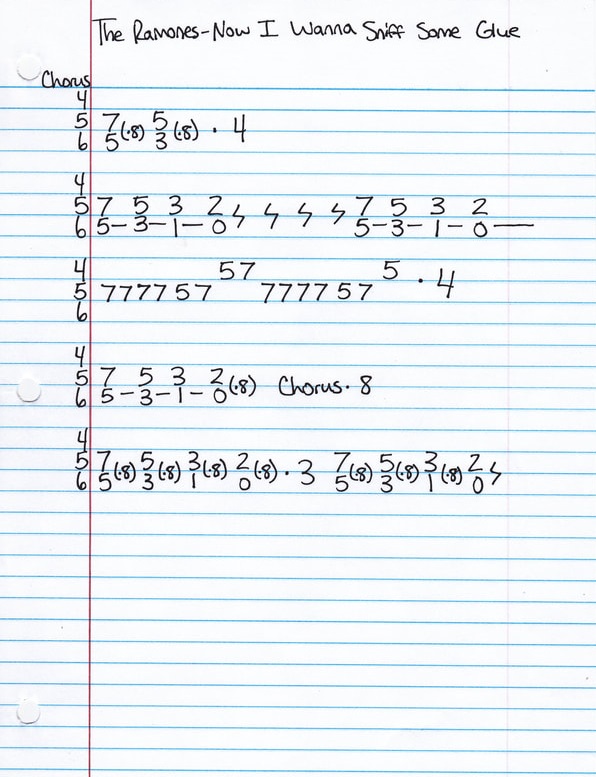 The Ramones-Now I Wanna Sniff Some Glue
Chorus
4
5 7(·8) 5(·8) · 4
6 5 3
4
5 7 5 3 2 ϟ ϟ ϟ ϟ 7 5 3 2
6 5-3-1-0 5-3-1-0-
4 57 5 · 4
5 7777 57 7777 57
6
4
5 7 5 3 2(·8) Chorus· 8
6 5-3-1-0
4
5 7(·8) 5(·8) 3(·8) 2(·8) · 3 7(·8) 5(·8) 3(·8) 2 ϟ
6 5 3 1 0 5 3 1 0